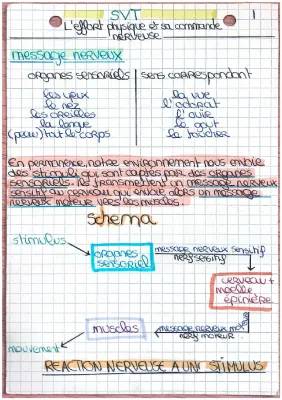 SVT
1
L'effort physique et sa commande
nerveuse
message nerveux
organes sensoriels
sens correspondant
les yeux
la vue
le nez
l'odorat
les oreilles
l'ouïe
la langue
le goût
(peau) tout le corps
le toucher
En permanence, notre environnement nous envoie
des stimuli qui sont captés par des organes
sensoriels. Ils transmettent un message nerveux
sensitif au cerveau qui envoie alors un message
nerveux moteur vers les muscles.
Schema
stimulus
organes
sensoriel
message nerveux sensitif
nerf sensitif
cerveau +
moelle
épinière
muscles
message nerveux mot
nerf moteur
mouvement
REACTION NERVEUSE A UN STIMULUS